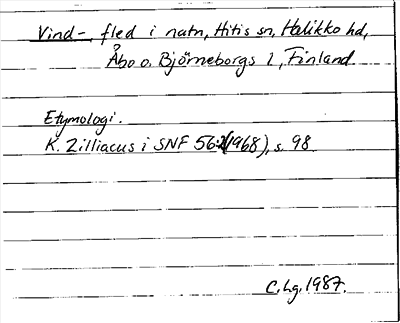 Vind-, fled i natn, Hitis sn, Halikko hd,
Åbo o. Björneborgs l, Finland.
Etymologi.
K. Zilliacus i SNF 56 (1968), s. 98.
C. Lg. 1987.